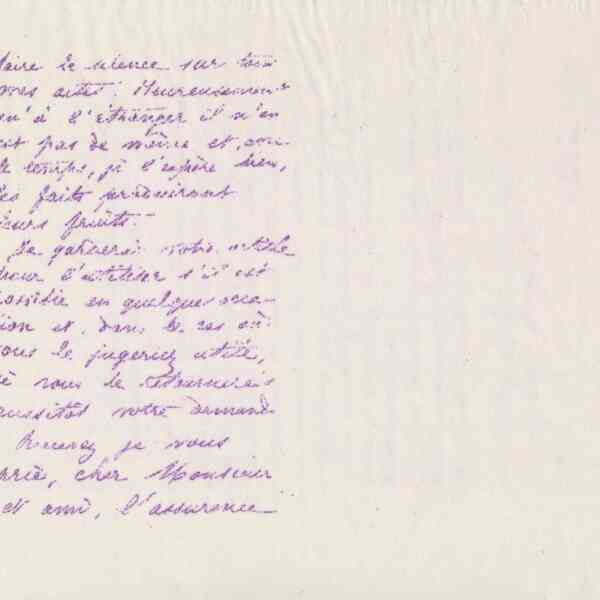 faire le silence sur tous
mes actes. Heureusement
qu'à l'étranger il n'en
est pas de même et, avec
le temps, je l'espère bien,
les faits produiront
leurs fruits.
Je garderai votre article
pour l'utiliser s'il est
possible en quelques occa-
sion et, dans le cas où
vous le jugeriez utile,
je vous le retournerais
aussitôt votre demande
Recevez je vous
prie, cher Monsieur
et ami, l'assurance